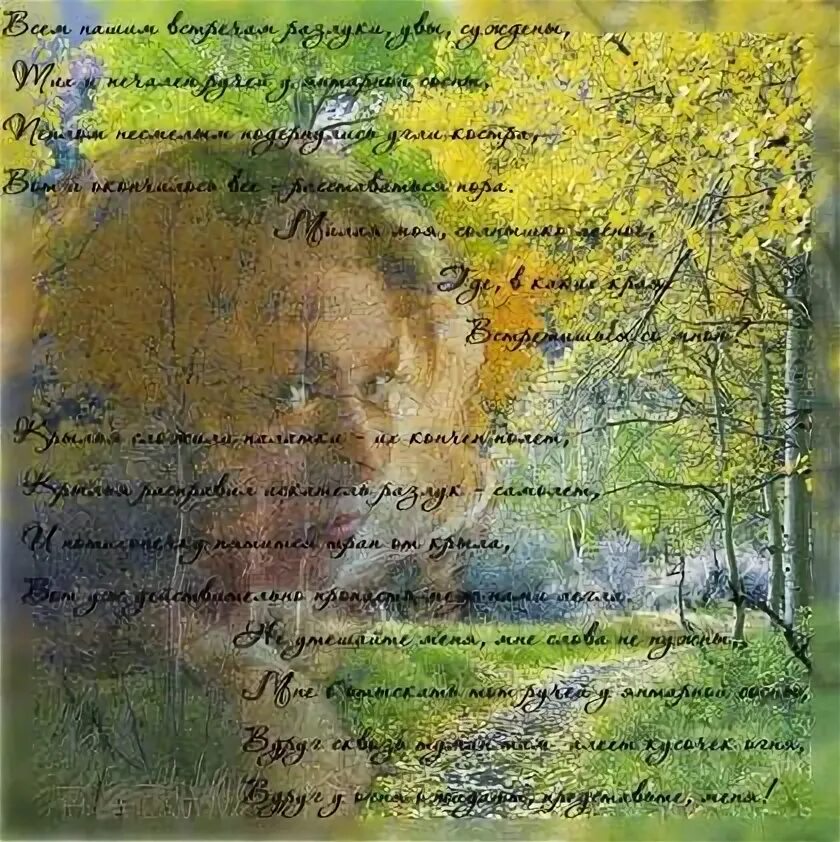 Всем нашим встречам разлуки, увы, суждены,
Тих и печален ручей у янтарной сосны,
Пеплом несмелым подернулись угли костра,
Вот и окончилось все - расставаться пора.
Милая моя, солнышко лесное,
Где, в каких краях
Встретишься со мною?
Крылья сложили палатки - их кончен полет,
Крылья расправил искатель разлук - самолет,
И потихонечку пятится трап от крыла,
Вот уж действительно пропасть меж нами легла.
Не утешайте меня, мне слова не нужны,
Мне б отыскать тот ручей у янтарной сосны,
Вдруг сквозь туман там алеет кусочек огня,
Вдруг у огня ожидают, представьте, меня!